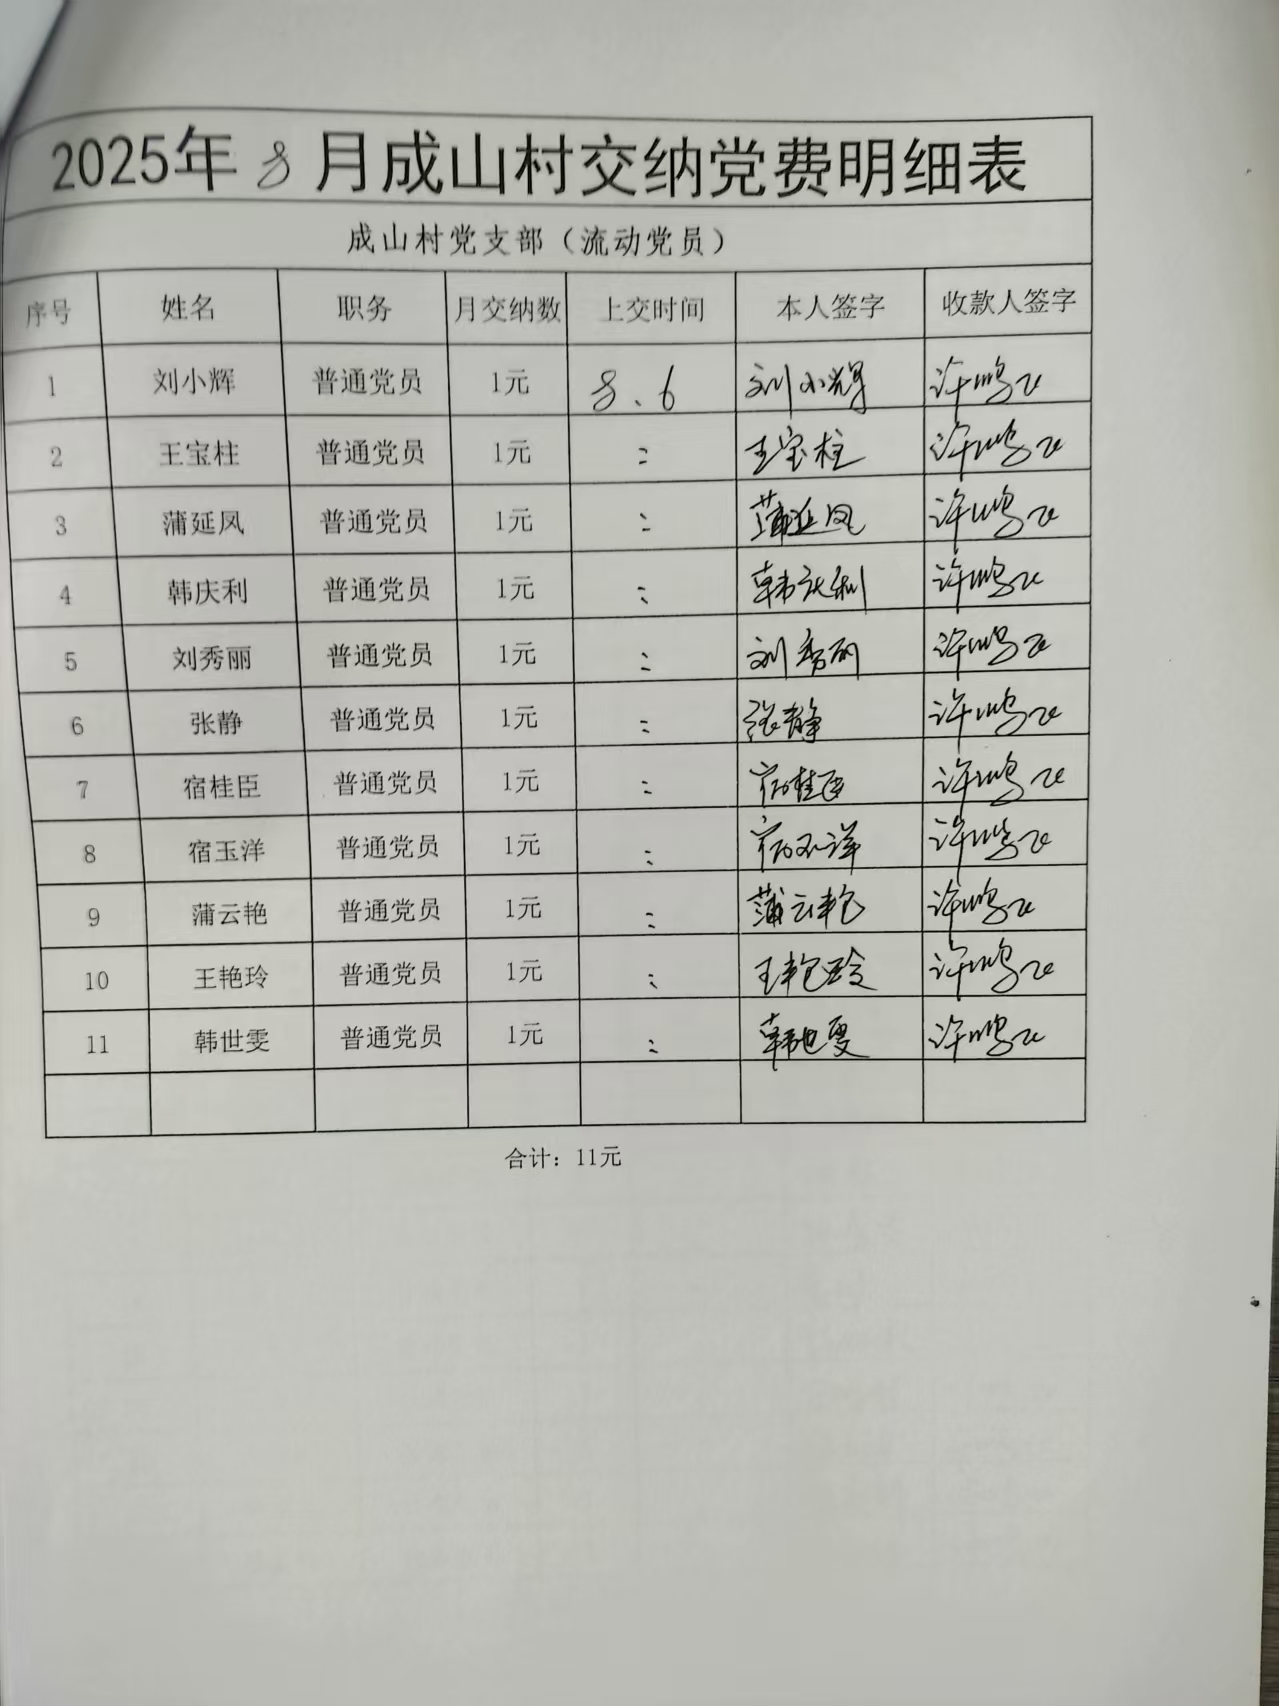 2025年8月成山村交纳党费明细表
成山村党支部（流动党员）
序号 姓名 职务 月交纳数 上交时间 本人签字 收款人签字
1 刘小辉 普通党员 1元 8.6 刘小辉 许鹏飞
2 王宝柱 普通党员 1元 〃 王宝柱 许鹏飞
3 蒲延凤 普通党员 1元 〃 蒲延凤 许鹏飞
4 韩庆利 普通党员 1元 〃 韩庆利 许鹏飞
5 刘秀丽 普通党员 1元 〃 刘秀丽 许鹏飞
6 张静 普通党员 1元 〃 张静 许鹏飞
7 宿桂臣 普通党员 1元 〃 宿桂臣 许鹏飞
8 宿玉洋 普通党员 1元 〃 宿玉洋 许鹏飞
9 蒲云艳 普通党员 1元 〃 蒲云艳 许鹏飞
10 王艳玲 普通党员 1元 〃 王艳玲 许鹏飞
11 韩世雯 普通党员 1元 〃 韩世雯 许鹏飞
合计：11元